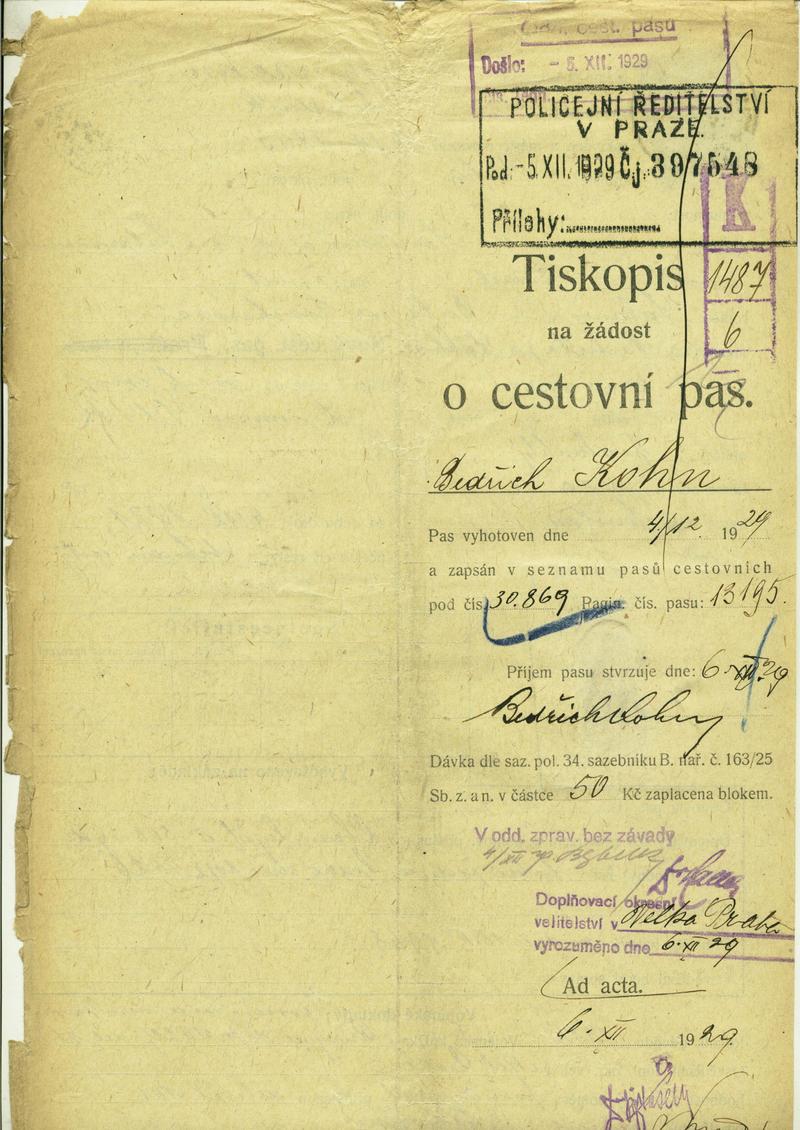 cest. pasů
Došlo: - 5. XII. 1929
POLICEJNÍ ŘEDITELSTVÍ
V PRAZE.
Pod: -5.XII.1929 Čj. 397548
Přílohy:
K
Tiskopis
1487
na žádost
6
o cestovní pas.
Bedřich Kohn
Pas vyhotoven dne 4/12 1929
a zapsán v seznamu pasů cestovních
pod čís. 30.869 Pagin. čís. pasu: 13195.
Příjem pasu stvrzuje dne: 6.XII.29
Bedřich Kohn
Dávka dle saz. pol. 34. sazebníku B. nař. č. 163/25
Sb. z. a n. v částce 50 Kč zaplacena blokem.
V odd. zprav. bez závady
4/XII
Doplňovací okresní
velitelství v Velká Praha
vyrozuměno dne 6.XII 29
Ad acta.
6. XII 1929.